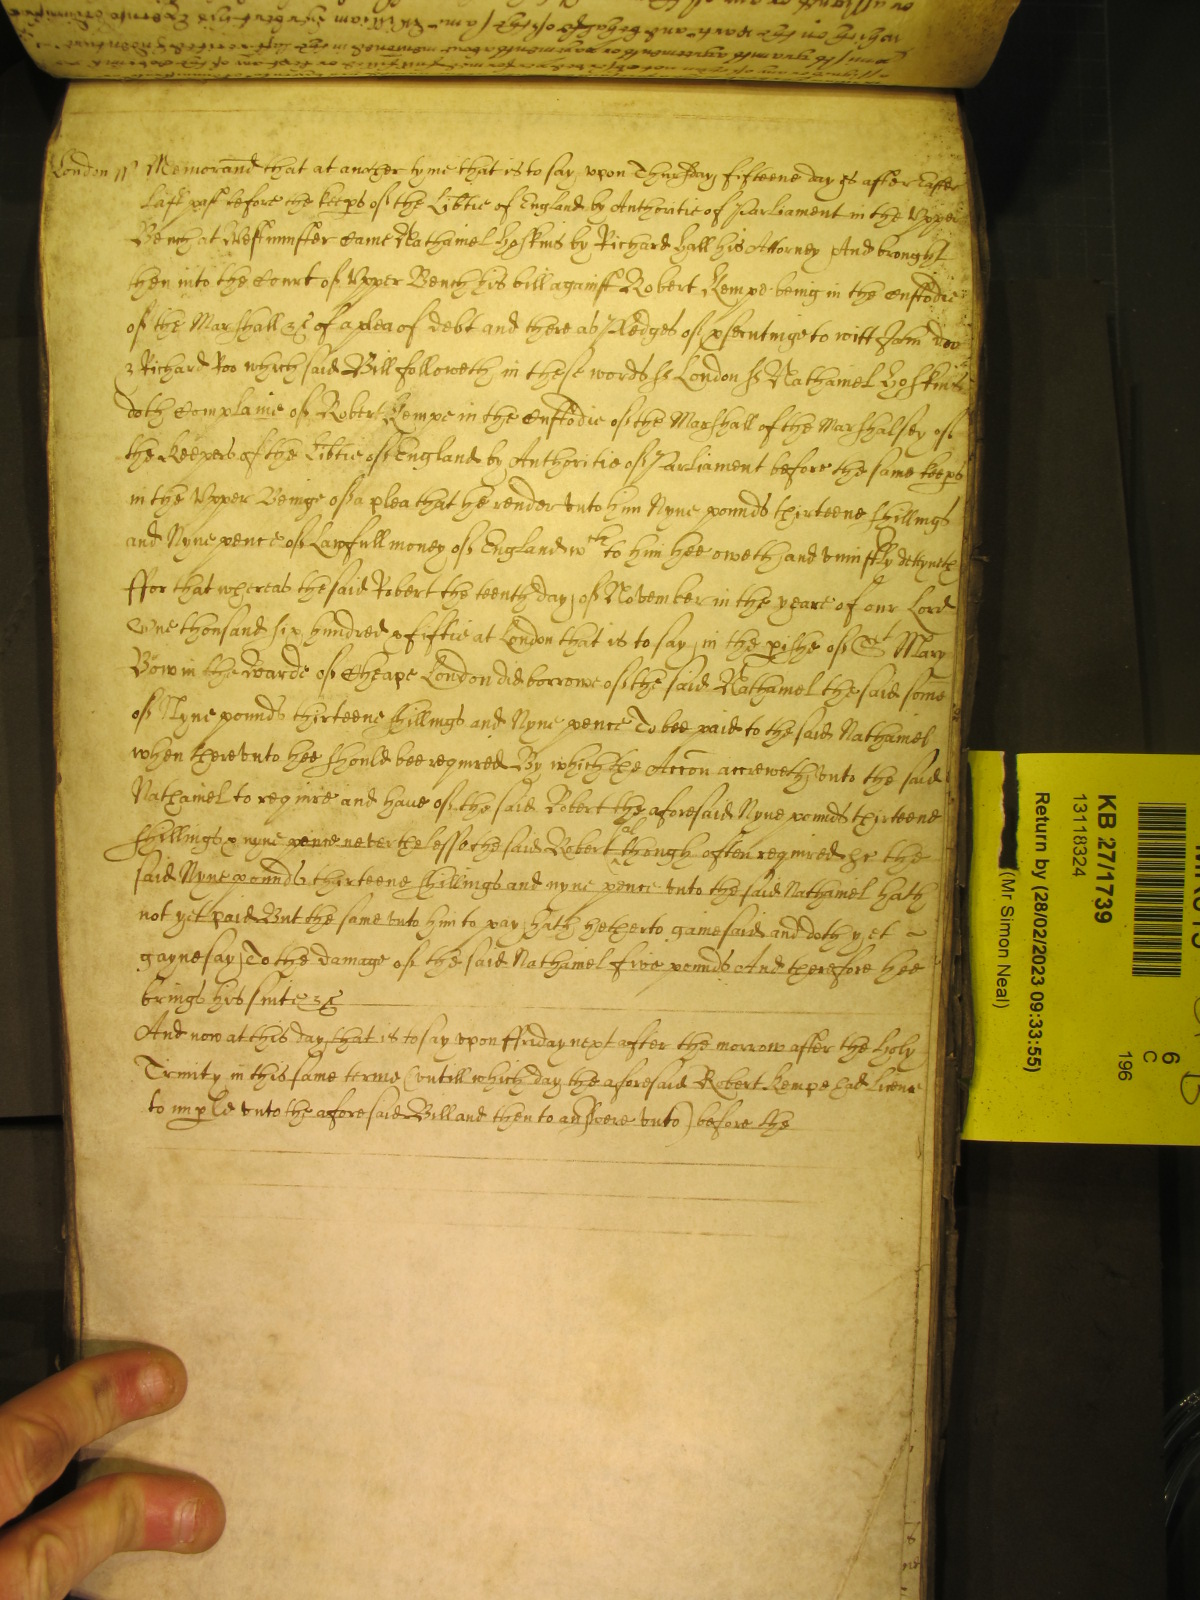 London ss Memorand that at another tyme that is to say upon Thursday fifteene dayes after Easter
last past before the keeps of the Libtie of England by Authoritie of Parliament in the Upper
Bench at Westminster Came Nathaniel Hoskins by Richard Hall his Attorney And brought
then into the Court of Upper Bench his bill against Robert Kempe being in the Custodie
of the Marshall &c of a plea of debt and there as Pledges of psecutinge to witt John doo
& Richard Roo which said Bill followeth in these words ss London ss Nathaniel Hoskins
doth Complaine of Robert Kempe in the Custodie of the Marshall of the Marshalsey of
the Keepers of the Libtie of England by Authoritie of Parliament before the same keeps
in the Upper Benige of a plea that he render unto him Nyne pounds thirteene shillings
and Nyne pence of Lawfull money of England wch to him hee oweth and uniustly detteyneth
ffor that whereas the said Robert the teenth day of November in the yeare of our Lord
One thousand six hundred & fiftie at London that is to say in the pishe of St Mary
Bow in the Warde of Cheape London did borrowe of the said Nathaniel the said some
of Nyne pounds thirteene shillings and Nyne pence To bee paid to the said Nathaniel
when thereunto hee should bee required By which the Accon accreweth unto the said
Nathaniel to require and have of the said Robert the aforesaid Nyne pounds thirteene
shillings & nyne penne nevertheless the said Robert although often required &c the
said Nyne pounds thirteene shillings and nyne pence unto the said Nathaniel hath
not yet paid But the same unto him to pay hath hetherto gainesaid and doth yet
gaynesay To the damage of the said Nathaniel five pounds And therefore hee
brings his suite &c
And now at this day that is to say upon ffriday next after the morrow after the holy
Trinity in this same terme (untill which day the aforesaid Robert Kempe had licence
to imple unto the aforesaid Bill and then to answere unto) before the
KB 27/1739
13118324
Return by (28/02/2023 09:33:55)
(Mr Simon Neal)
6
C
196